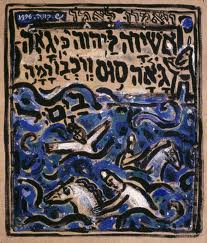 ויאמרו לאמר
אשירה ליהוה כי גאה
גאה סוס ורכבו רמה
בים